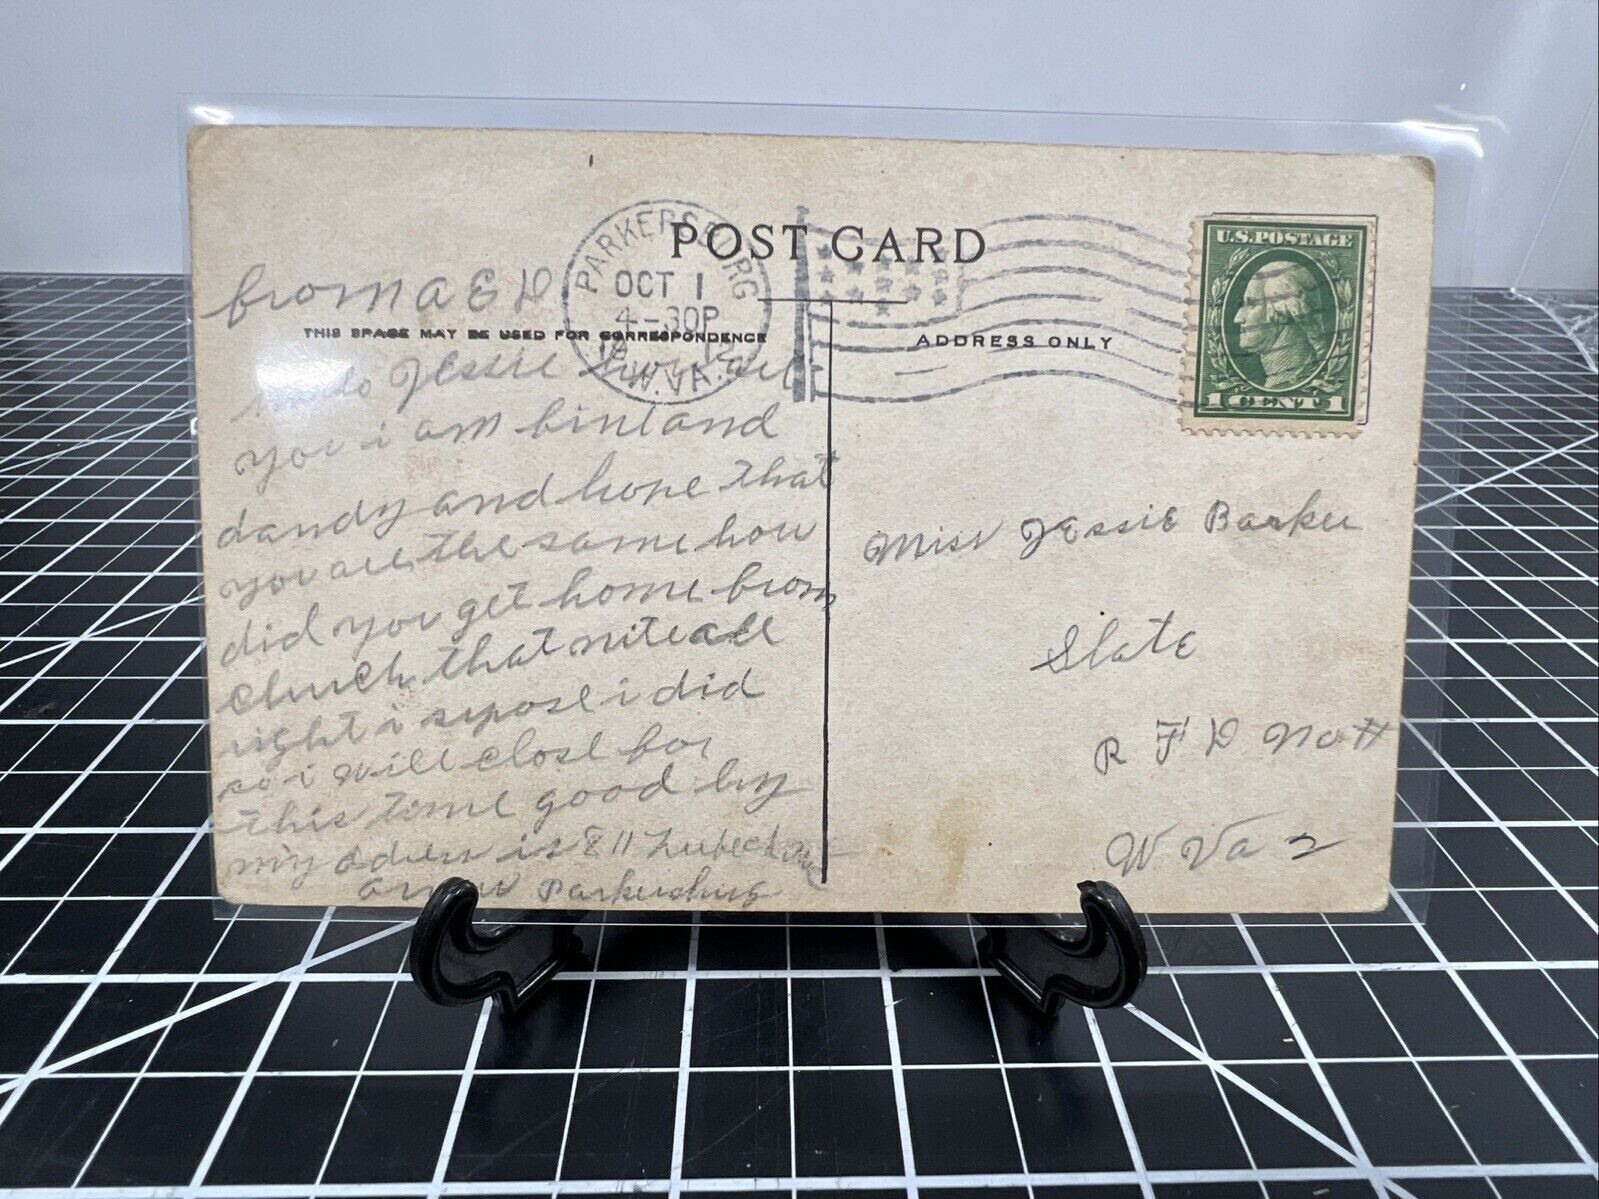 POST CARD
PARKERSBURG
OCT 1
4-30P
W.VA.
U.S. POSTAGE
1 CENT 1
from a E D
THIS SPACE MAY BE USED FOR CORRESPONDENCE
ADDRESS ONLY
Jessie
you i am fin and
dandy and hope that
you are the same how
did you get home from
chuch that nite all
right i sepose i did
so i will close for
this time good by
my adress is 811 Lubeck Ave
Parkersburg
Miss Jessie Barker
Slate
R F D No
W Va 2